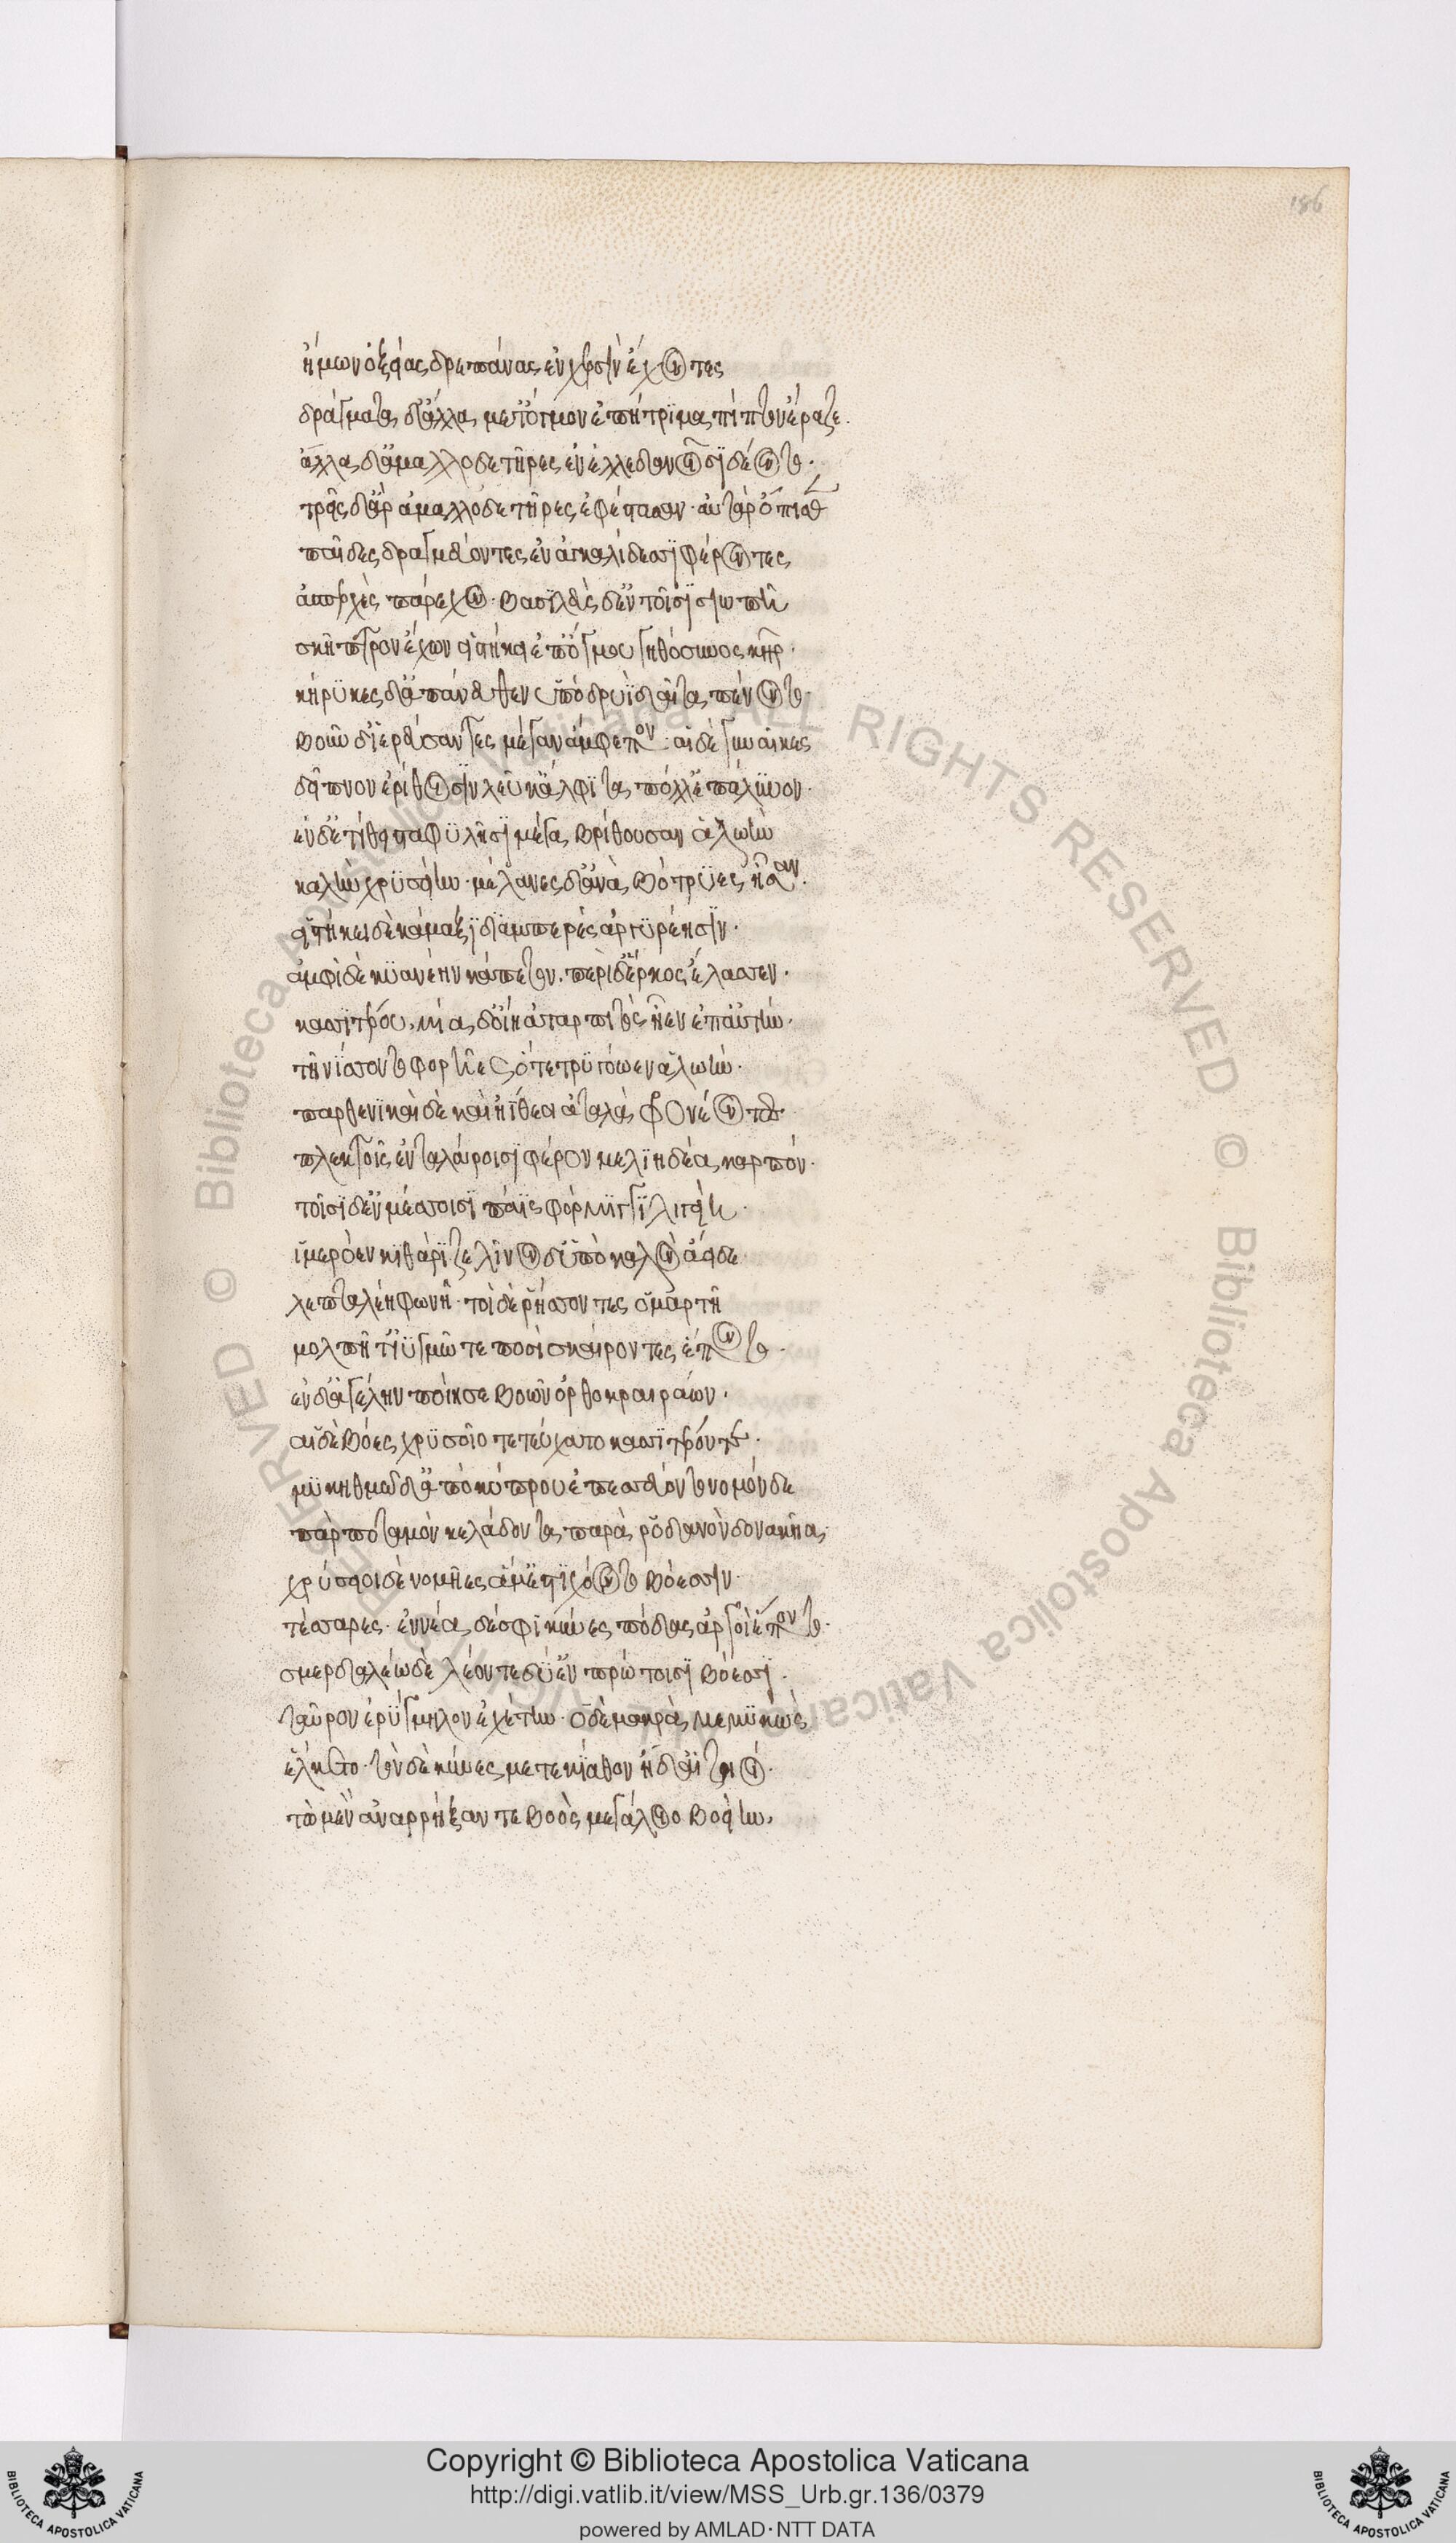 186
ἤμων ὀξείας δρεπάνας ἐν χερσὶν ἔχοντες
δράγματα δ' ἄλλα μετ' ὄγμον ἐπήτριμα πίπτον ἔραζε.
ἄλλα δ' ἀμαλλοδετῆρες ἐν ἐλλεδανοῖσι δέοντο.
τρεῖς δ' ἄρ ἀμαλλοδετῆρες ἐφέστασαν. αὐτὰρ ὄπισθεν
παῖδες δραγμεύοντες ἐν ἀγκαλίδεσσι φέροντες
ἀσπερχὲς πάρεχον. βασιλεὺς δ' ἐν τοῖσι σιωπῆ
σκῆπτρον ἔχων εἱστήκει ἐπ' ὄγμου γηθόσυνος κῆρ.
κήρυκες δ' ἀπάνευθεν ὑπὸ δρυῒ δαῖτα πένοντο.
βοῦν δ' ἱερεύσαντες μέγαν ἄμφεπον. αἱ δὲ γυναῖκες
δεῖπνον ἐρίθοισιν λεύκ' ἄλφιτα πόλλ' ἐπάλυνον.
ἐν δ' ἐτίθει σταφυλῇσι μέγα βρίθουσαν ἀλωὴν
καλὴν χρυσείην. μέλανες δ' ἀνὰ βότρυες ἦσαν.
εἱστήκει δὲ κάμαξι διαμπερὲς ἀργυρέησιν.
ἀμφὶ δὲ κυανέην κάπετον. περὶ δ' ἕρκος ἔλασσεν.
κασσιτέρου. μία δ' οἴη ἀταρπιτὸς ἦεν ἐπ' αὐτήν.
τῇ νίσσοντο φορῆες ὅτε τρυγόωεν ἀλωήν.
παρθενικαὶ δὲ καὶ ἠΐθεοι ἀταλὰ φρονέοντες
πλεκτοῖς ἐν ταλάροισι φέρον μελιηδέα καρπόν.
τοῖσι δ' ἐν μέσσοισι πάϊς φόρμιγγι λιγείη.
ἱμερόεν κιθάριζε λίνον δ' ὑπὸ καλὸν ἄειδε
λεπταλέη φωνῇ. τοὶ δὲ ῥήσσοντες ὁμαρτῇ
μολπῇ τ' ἰυγμῷ τε ποσὶ σκαίροντες ἕποντο.
ἐν δ' ἀγέλην ποίησε βοῶν ὀρθοκραιράων.
αἱ δὲ βόες χρυσοῖο τετεύχατο κασσιτέρου τε.
μυκηθμῷ δ' ἀπὸ κόπρου ἐπεσσεύοντο νομόνδε
πὰρ ποταμὸν κελάδοντα παρὰ ῥοδανὸν δονακῆα.
χρύσειοι δὲ νομῆες ἅμ' ἐστιχόοντο βόεσσιν.
τέσσαρες. ἐννέα δέ σφι κύνες πόδας ἀργοὶ ἕποντο.
σμερδαλέω δὲ λέοντε δύ' ἐν πρώτοισι βόεσσι.
ταῦρον ἐρύγμηλον ἐχέτην. ὁ δὲ μακρὰ μεμυκὼς
ἕλκετο. τὸν δὲ κύνες μετεκίαθον ἠδ' αἰζηοί.
τὼ μὲν ἀναρρήξαντε βοὸς μεγάλοιο βοείην,
Copyright © Biblioteca Apostolica Vaticana
http://digi.vatlib.it/view/MSS_Urb.gr.136/0379
powered by AMLAD·NTT DATA
BIBLIOTECA APOSTOLICA VATICANA
BIBLIOTECA APOSTOLICA VATICANA
© Biblioteca Apostolica Vaticana ALL RIGHTS RESERVED
© Biblioteca Apostolica Vaticana ALL RIGHTS RESERVED